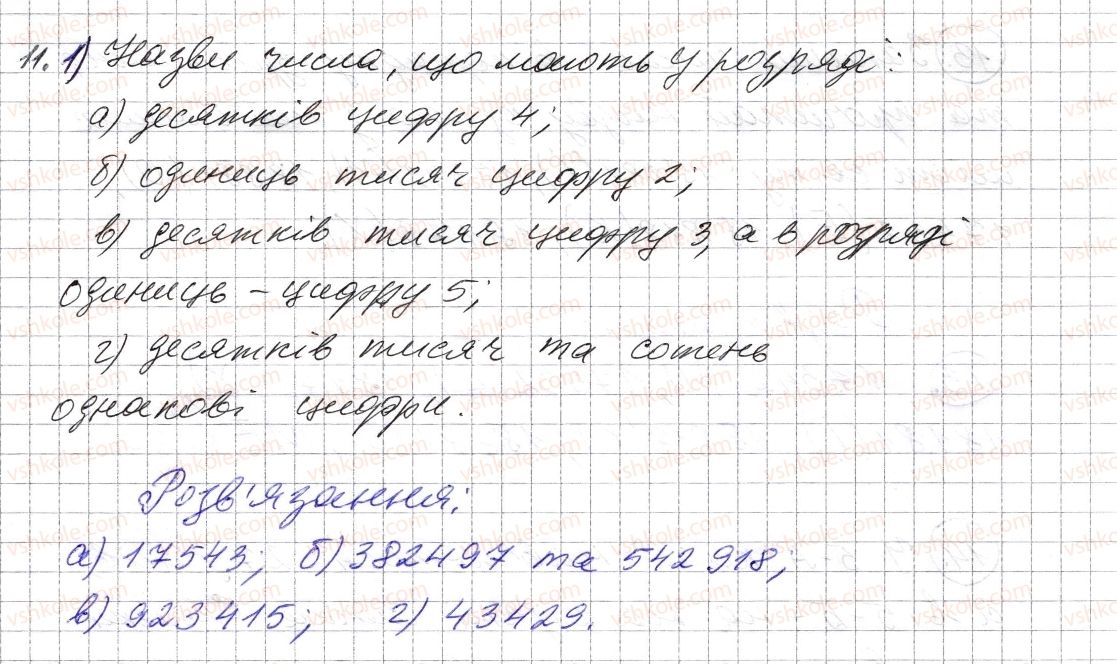 11. 1) Назви числа, що мають у розряді:
а) десятків цифру 4;
б) одиниць тисяч цифру 2;
в) десятків тисяч цифру 3, а в розряді
одиниць – цифру 5;
г) десятків тисяч та сотень
однакові цифри.
Розв'язання:
а) 17543; б) 382497 та 542918;
в) 923415; г) 43429.